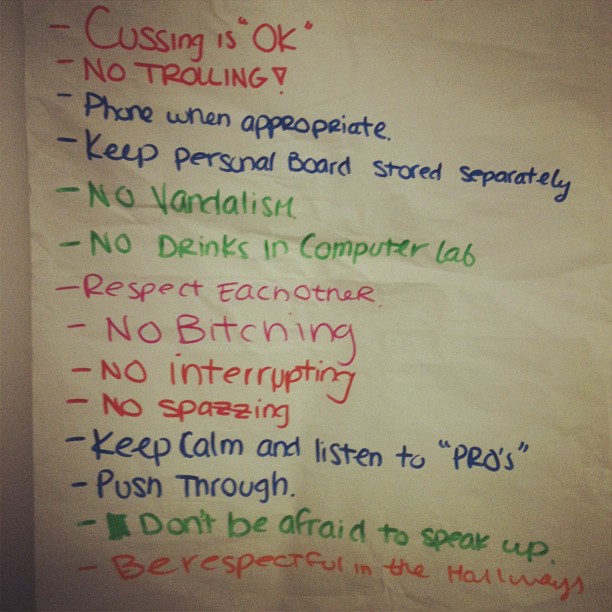 - Cussing is "OK"
- NO TROLLING!
- Phone when appropriate.
- Keep personal Board stored separately
- NO Vandalism.
- NO DRINKS IN Computer lab
- Respect EachOther.
- No Bitching
- NO interrupting
- NO spazzing
- Keep Calm and listen to "PRO's"
- Push Through.
- Don't be afraid to speak up.
- Be respectful in the Hallways